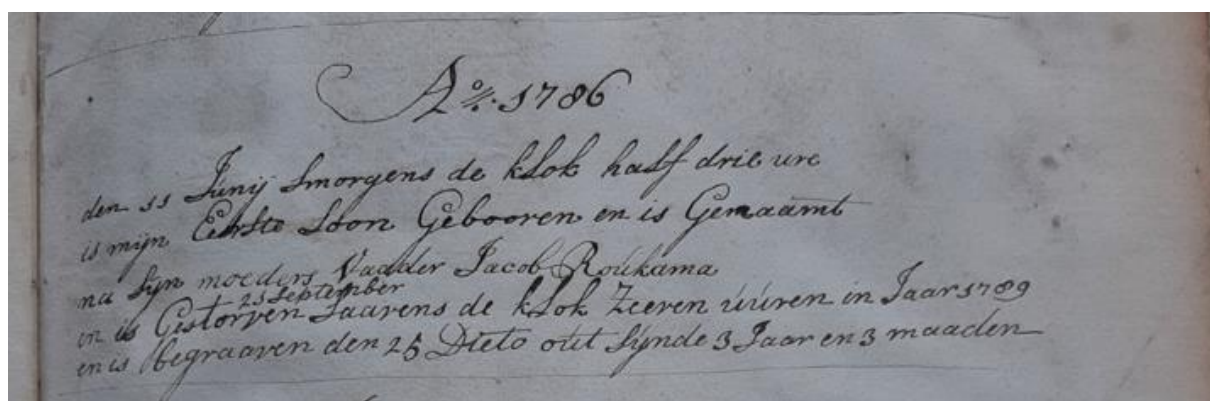 Ao. 1786
den 11 Junij smorgens de klok half drie ure
is mijn Eerste Soon Gebooren en is Genaamt
na Sijn moeders Vaader Jacob Roukama
21 September
en is Gestorven Saavens de klok Zeeven uuren in Jaar 1789
en is begraaven den 25 Dieto out Sijnde 3 Jaar en 3 maaden